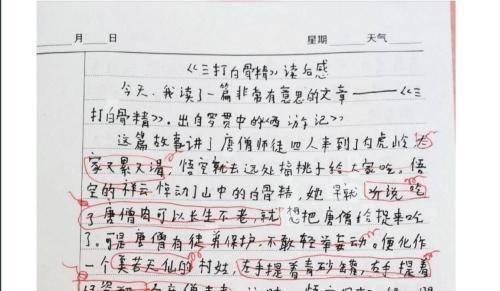 月 日 星期 天气
《三打白骨精》读后感
今天,我读了一篇非常有意思的文章——《三
打白骨精》。出自罗贯中的《西游记》
这篇故事讲了唐僧师徒四人来到了白虎岭,大
家又累又渴,悟空就去远处摘桃子给大家吃。悟
空的祥云惊动了山中的白骨精,她早就听说吃
了唐僧肉可以长生不老,就想把唐僧给捉来吃
了。可是唐僧有徒弟保护,不敢轻举妄动。便化作
一个美若天仙的村姑,左手提着青砂罐,右手提着